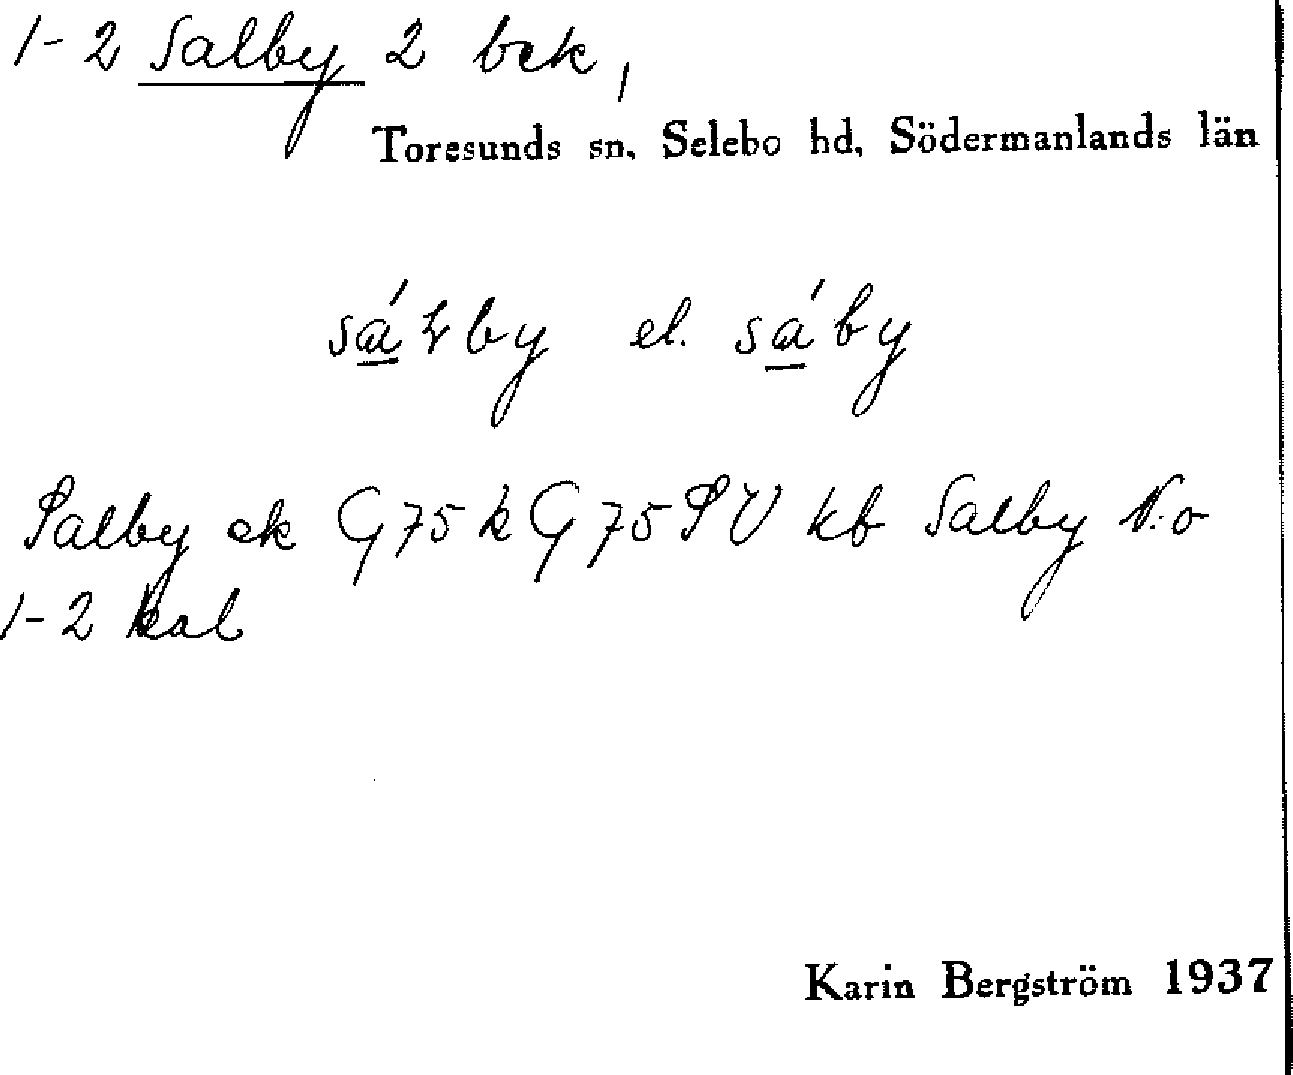 1-2 Salby 2 bek,
Toresunds sn, Selebo hd, Södermanlands län
sáłby el. sáby
Salby ek G75k G75SV kb Salby N:o
1-2 kal
Karin Bergström 1937